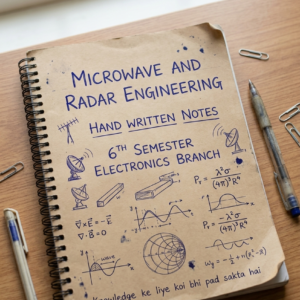 MICROWAVE AND
RADAR ENGINEERING
HAND WRITTEN NOTES
6TH SEMESTER
ELECTRONICS BRANCH
Knowledge ke liye koi bhi pad sakta hai